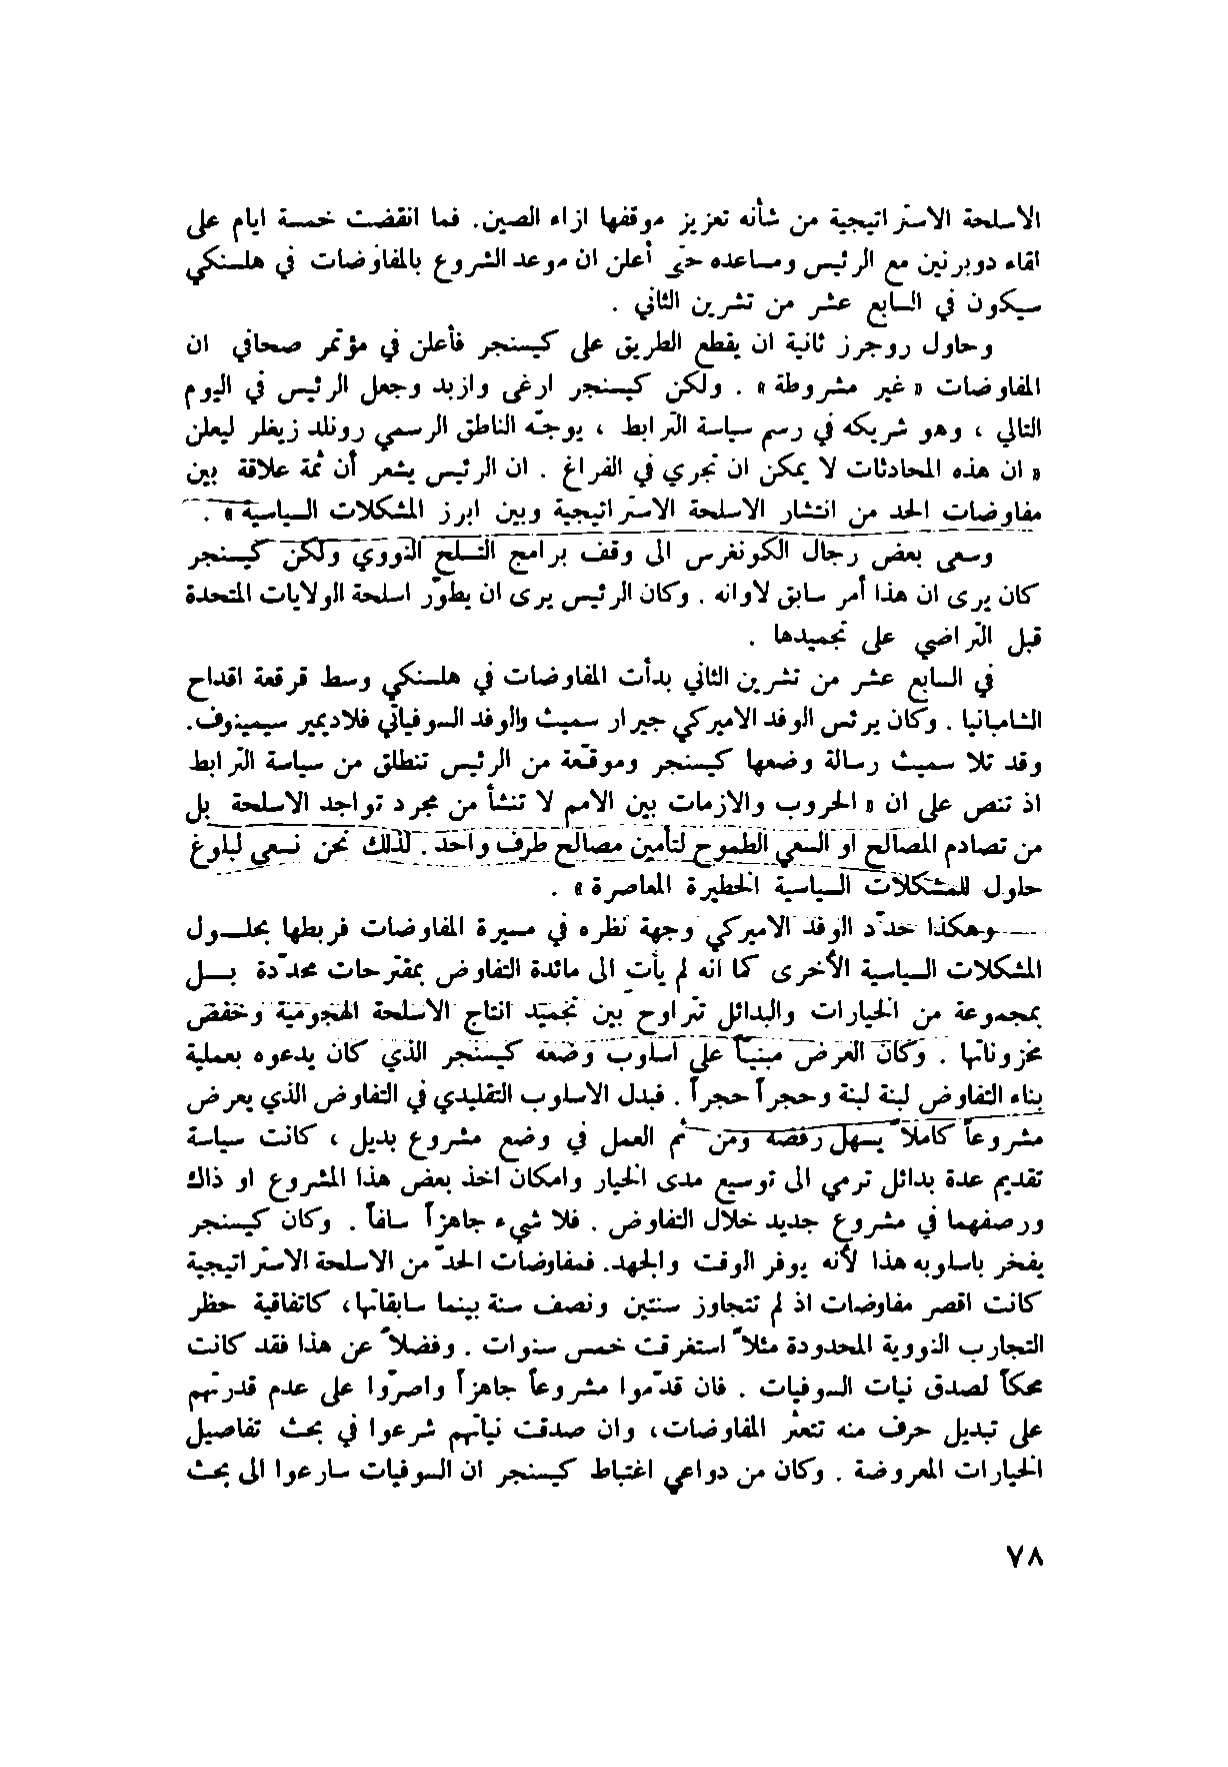 الاسلحة الاستراتيجية من شأنه تعزيز موقفها ازاء الصين. فما انقضت خمسة ايام على
لقاء دوبرنين مع الرئيس ومساعده حتى أعلن ان موعد الشروع بالمفاوضات في هلسنكي
سيكون في السابع عشر من تشرين الثاني .
وحاول روجرز ثانية ان يقطع الطريق على كيسنجر فأعلن في مؤتمر صحافي ان
المفاوضات « غير مشروطة » . ولكن كيسنجر ارغى وازبد وجعل الرئيس في اليوم
التالي ، وهو شريكه في رسم سياسة الترابط ، يوجّه الناطق الرسمي رونلد زيغلر ليعلن
« ان هذه المحادثات لا يمكن ان تجري في الفراغ . ان الرئيس يشعر أن ثمة علاقة بين
مفاوضات الحد من انتشار الاسلحة الاستراتيجية وبين ابرز المشكلات السياسية » .
وسعى بعض رجال الكونغرس الى وقف برامج التسلح النووي ولكن كيسنجر
كان يرى ان هذا أمر سابق لاوانه . وكان الرئيس يرى ان يطوّر اسلحة الولايات المتحدة
قبل التراضي على تجميدها .
في السابع عشر من تشرين الثاني بدأت المفاوضات في هلسنكي وسط قرقعة اقداح
الشامبانيا . وكان يرئس الوفد الاميركي جيرار سميث والوفد السوفياتي فلاديمير سيمينوف.
وقد تلا سميث رسالة وضعها كيسنجر وموقّعة من الرئيس تنطلق من سياسة الترابط
اذ تنص على ان « الحروب والازمات بين الامم لا تنشأ من مجرد تواجد الاسلحة بل
من تصادم المصالح او السعي الطموح لتأمين مصالح طرف واحد . لذلك نحن نسعى لبلوغ
حلول للمشكلات السياسية الخطيرة المعاصرة » .
وهكذا حدّد الوفد الاميركي وجهة نظره في مسيرة المفاوضات فربطها بحلول
المشكلات السياسية الأخرى كما انه لم يأتِ الى مائدة التفاوض بمقترحات محدّدة بل
بمجموعة من الخيارات والبدائل تتراوح بين تجميد انتاج الاسلحة الهجومية وخفض
مخزوناتها . وكان العرض مبنياً على اسلوب وضعه كيسنجر الذي كان يدعوه بعملية
بناء التفاوض لبنة لبنة وحجراً حجراً . فبدل الاسلوب التقليدي في التفاوض الذي يعرض
مشروعاً كاملاً يسهل رفضه ومن ثم العمل في وضع مشروع بديل ، كانت سياسة
تقديم عدة بدائل ترمي الى توسيع مدى الخيار وامكان اخذ بعض هذا المشروع او ذاك
ورصفهما في مشروع جديد خلال التفاوض . فلا شيء جاهزاً سلفاً . وكان كيسنجر
يفخر باسلوبه هذا لأنه يوفر الوقت والجهد. فمفاوضات الحدّ من الاسلحة الاستراتيجية
كانت اقصر مفاوضات اذ لم تتجاوز سنتين ونصف سنة بينما سابقاتها، كاتفاقية حظر
التجارب النووية المحدودة مثلاً استغرقت خمس سنوات . وفضلاً عن هذا فقد كانت
محكاً لصدق نيات السوفيات . فان قدّموا مشروعاً جاهزاً واصرّوا على عدم قدرتهم
على تبديل حرف منه تتعثر المفاوضات، وان صدقت نياتهم شرعوا في بحث تفاصيل
الخيارات المعروضة . وكان من دواعي اغتباط كيسنجر ان السوفيات سارعوا الى بحث
٧٨